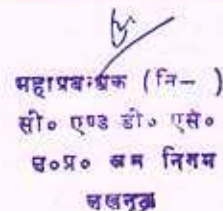 महाप्रबन्धक (नि— )
सी० एण्ड डी० एस०
उ०प्र० जल निगम
लखनऊ